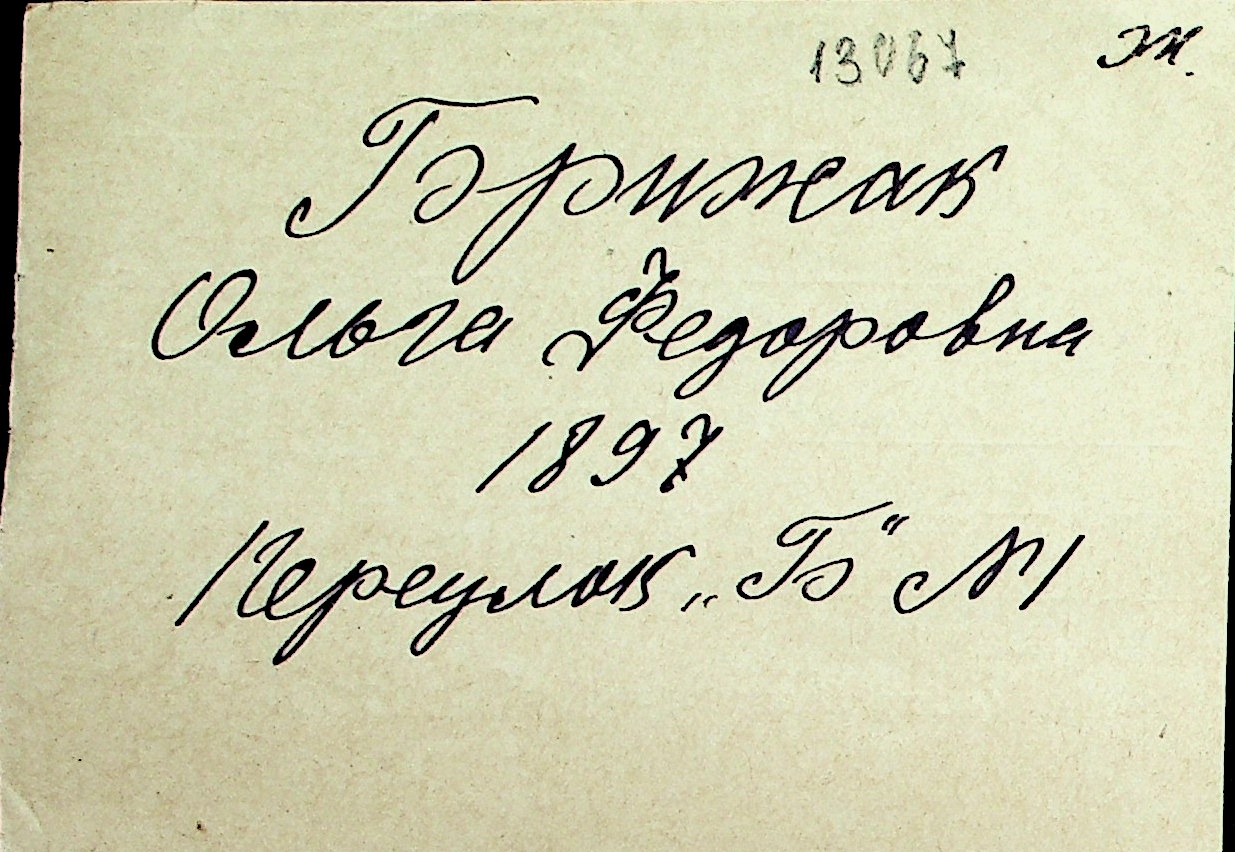 13067 ж.
Брижак
Ольга Федоровна
1897
Переулок „Б“ № 1